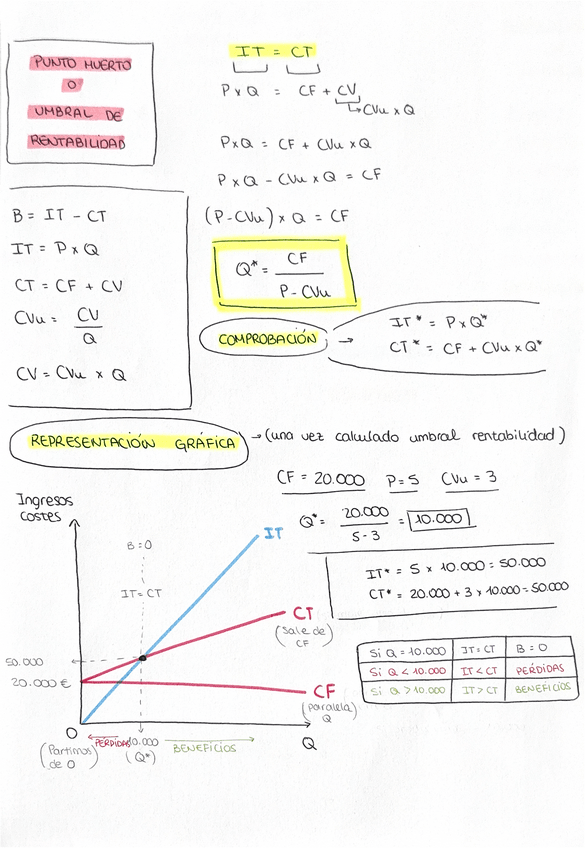 PUNTO MUERTO
O
UMBRAL DE
RENTABILIDAD
IT = CT
P x Q = CF + CV
CVu x Q
PxQ = CF + CVu x Q
P x Q - CVu x Q = CF
(P-CVu) x Q = CF
Q* = CF / P - CVu
B = IT - CT
IT = P x Q
CT = CF + CV
CVu = CV / Q
CV = CVu x Q
COMPROBACIÓN →
IT* = P x Q*
CT* = CF + CVu x Q*
REPRESENTACIÓN GRÁFICA → (una vez calculado umbral rentabilidad)
CF = 20.000 P = 5 CVu = 3
Q* = 20.000 / 5 - 3 = 10.000
IT* = 5 x 10.000 = 50.000
CT* = 20.000 + 3 x 10.000 = 50.000
Ingresos
costes
B = 0
IT = CT
IT
CT
(sale de
CF)
50.000
20.000 €
CF
(paralela)
Q
O
(Partimos
de 0)
PERDIDAS
10.000
(Q*)
BENEFICIOS
Q
Si Q = 10.000 IT = CT B = 0
Si Q < 10.000 IT < CT PÉRDIDAS
Si Q > 10.000 IT > CT BENEFICIOS